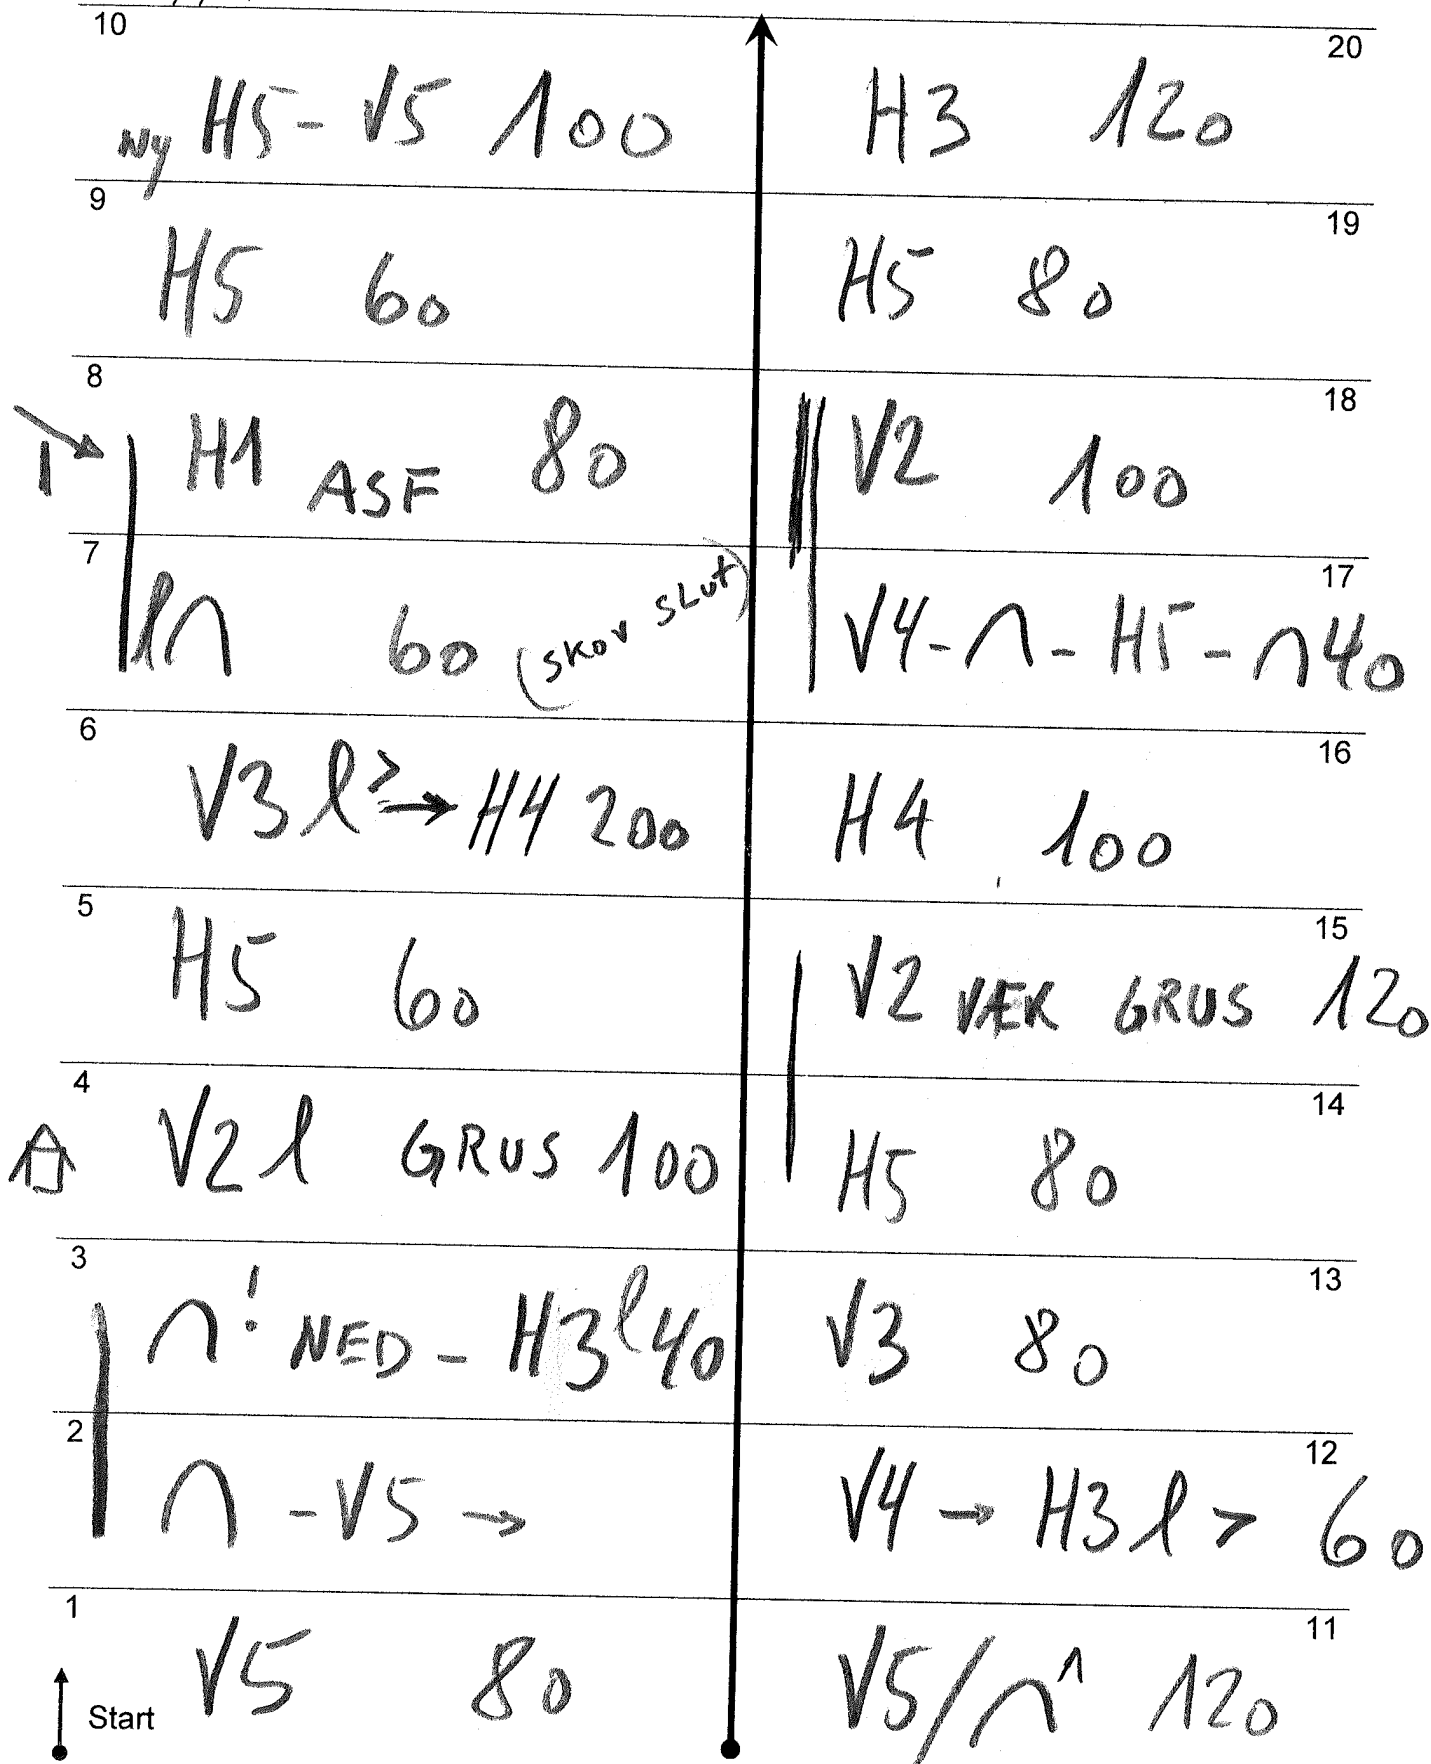 10
Ny H5 - V5 100
9
H5 60
8
H1 ASF 80
7
l ∩ 60 (skov slut)
6
V3 l > → H4 200
5
H5 60
4
V2 l GRUS 100
3
∩ ! NED - H3 l 40
2
∩ - V5 →
1
V5 80
Start
20
H3 120
19
H5 80
18
V2 100
17
V4 - ∩ - H5 - ∩ 40
16
H4 100
15
V2 VÆK GRUS 120
14
H5 80
13
V3 80
12
V4 → H3 l > 60
11
V5/∩^ 120